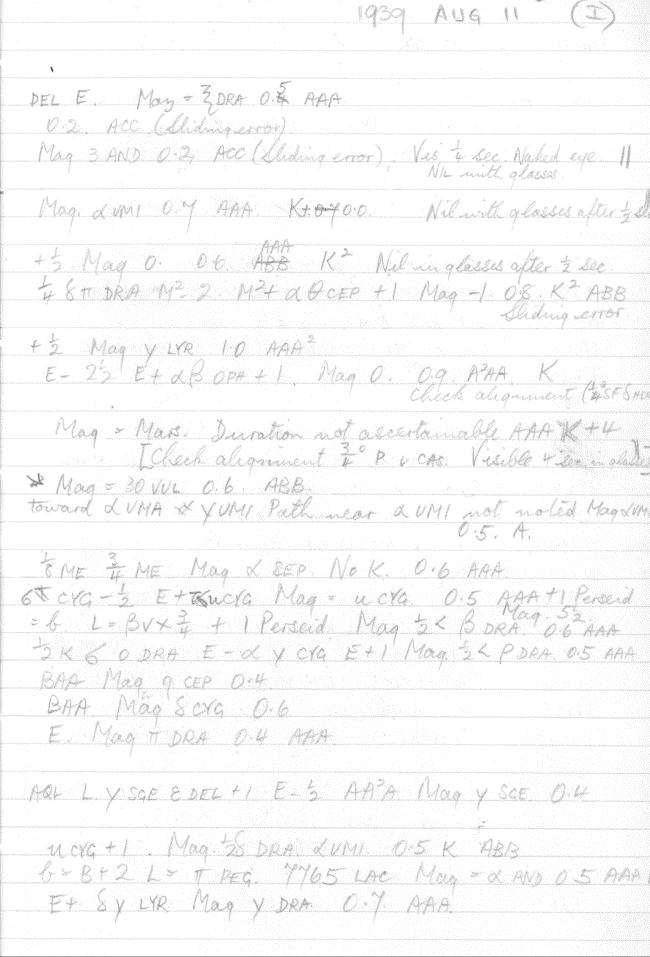 1939 AUG 11 (I)
DEL E. Mag = ξ DRA 0.5 AAA
0.2. ACC (Sliding error)
Mag 3 AND 0.2, ACC (Sliding error). Vis 1/4 sec. Naked eye. ||
NIL with glasses
Mag. α UMI 0.7 AAA. 0.0. Nil with glasses after 1/2
+1/2 Mag 0. 0.6 AAA K² Nil in glasses after 1/2 sec.
1/4 δ π DRA M² - 2. M²+ α θ CEP +1 Mag -1 0.8. K² ABB
Sliding error
+1/2 Mag γ LYR 1.0 AAA²
E - 2 1/2 E + α β OPH + 1. Mag 0. 0.9. A²AA. K
Check alignment
Mag = Mars. Duration not ascertainable AAA K + 4
[Check alignment 3/4° P. ν CAS. Visible 4 sec. in glasses
Mag = 30 VUL 0.6. ABB.
toward α UMA γ UMI Path near α UMI not noted Mag α UMI
0.5. A.
1/8 ME 3/4 ME Mag α SEP. No K. 0.6 AAA.
CYG - 1/2 E + u CYG Mag = u CYG. 0.5 AAA + 1 Perseid
Mag. 5 1/2
= b. L = β ν × 3/4 + 1 Perseid. Mag 1/2 < β DRA. 0.6 AAA
1/2 K 6 0 DRA E - α γ CYG E + 1 Mag. 1/2 < β DRA. 0.5 AAA
BAA Mag q CEP 0.4
BAA. Mag δ CYG 0.6
E. Mag π DRA 0.4 AAA
AQL L. γ SGE ε DEL + 1 E - 1/2 AA²A. Mag γ SGE 0.4
u CYG + 1. Mag. 1/2 δ DRA. α UMI. 0.5 K ABB
b = B + 2 L = π PEG. 7765 LAC. Mag = α AND 0.5 AAA
E + δ γ LYR Mag γ DRA. 0.7. AAA.